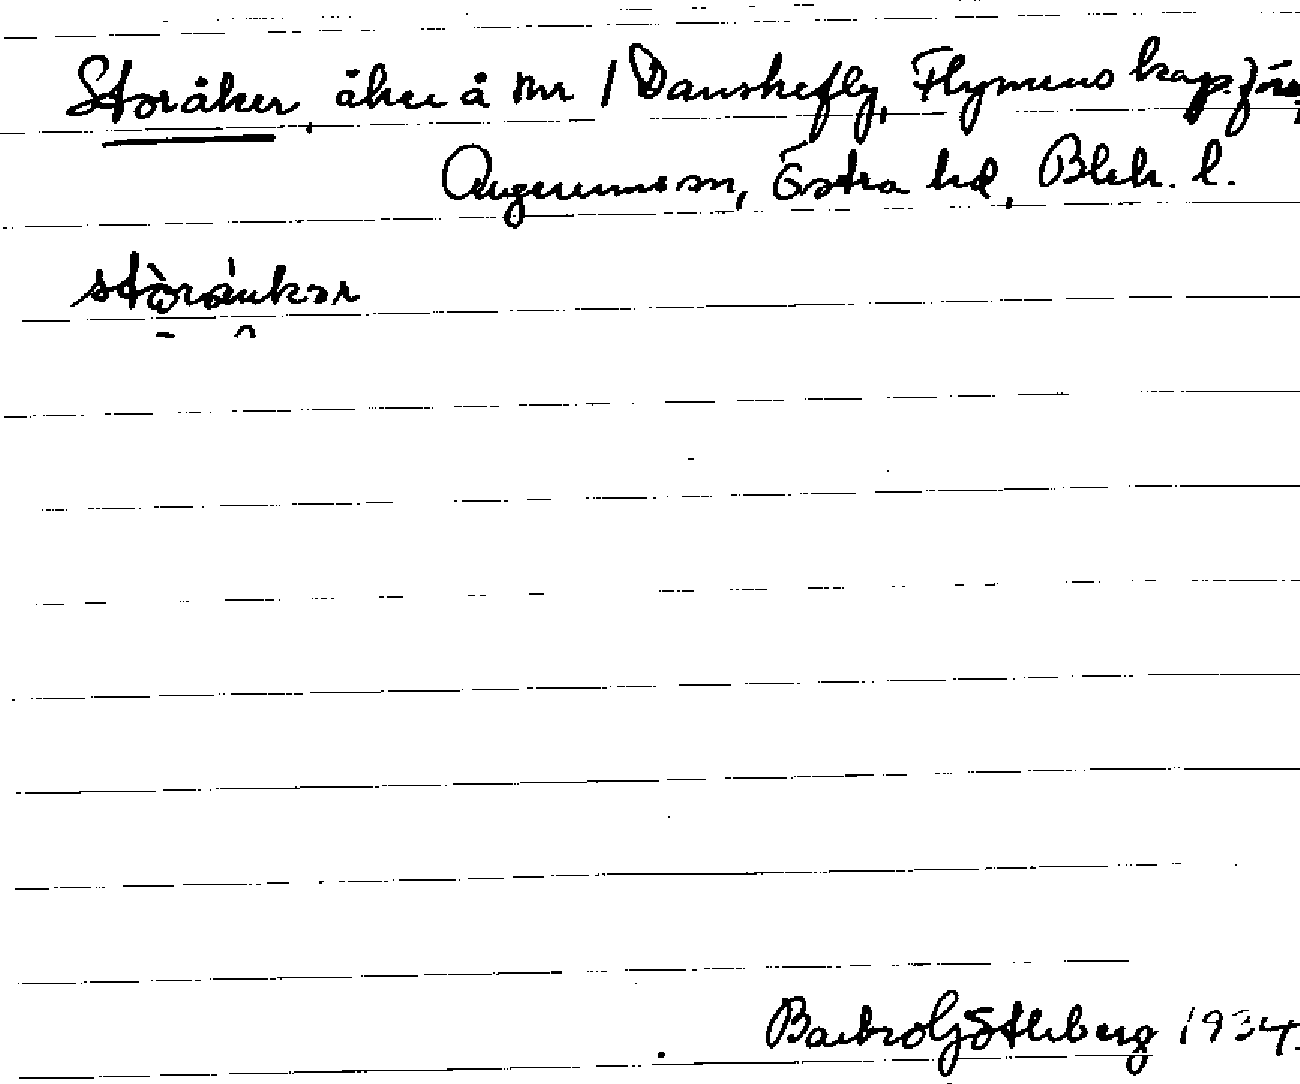 Storåker, åker å nr 1 Danskefly, Flymens kapj fs,
Augerums sn, Östra hd, Blek. l.
stòráukər
Barbro Götleberg 1934.